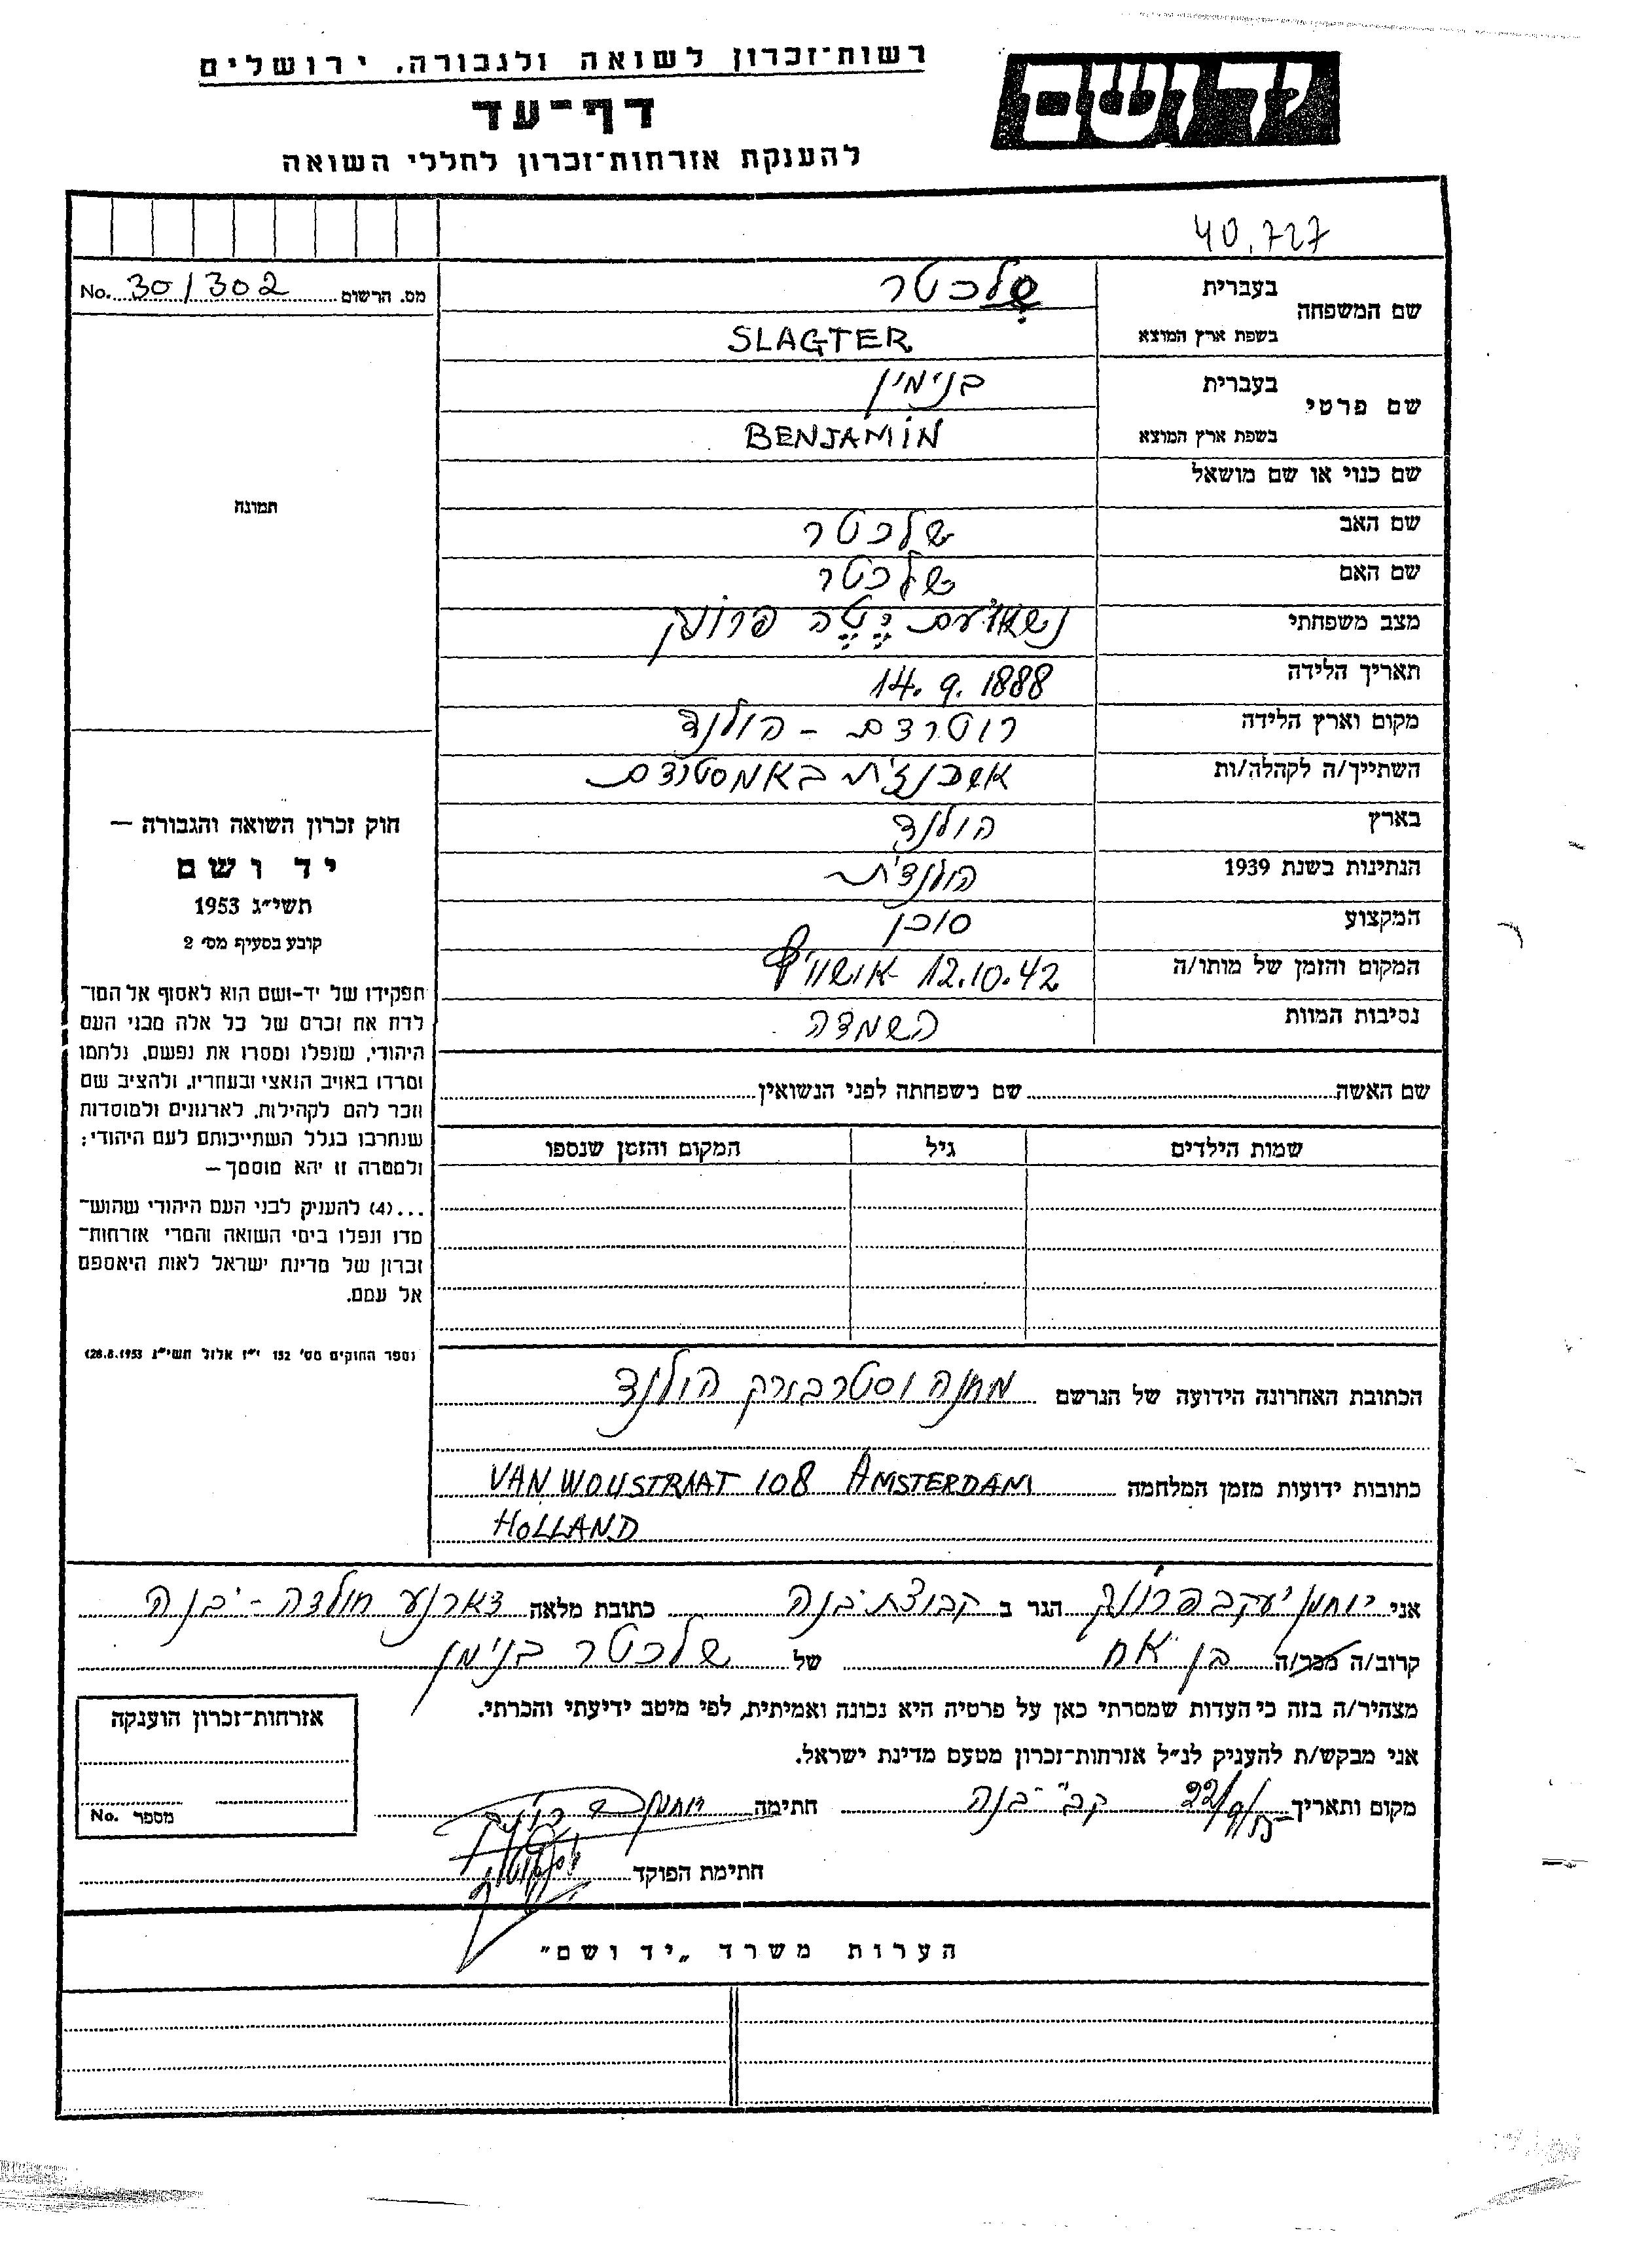 יד ושם
רשות־זכרון לשואה ולגבורה, ירושלים
דף־עד
להענקת אזרחות־זכרון לחללי השואה
40,727
מס. הרשום No. 30/302
שם המשפחה
בעברית שלכטר
בשפת ארץ המוצא SLAGTER
שם פרטי
בעברית בנימין
בשפת ארץ המוצא BENJAMIN
שם כנוי או שם מושאל
שם האב שלכטר
שם האם שלכטר
מצב משפחתי נשוי עם יטה
תאריך הלידה 14.9.1888
מקום וארץ הלידה רוטרדם - הולנד
השתייך/ה לקהלה/ות אשכנזית באמסטרדם
בארץ הולנד
הנתינות בשנת 1939 הולנדית
המקצוע סוכן
המקום והזמן של מותו/ה 12.10.42 אושוויץ
נסיבות המוות השמדה
תמונה
חוק זכרון השואה והגבורה —
יד ושם
תשי״ג 1953
קובע בסעיף מס׳ 2
תפקידו של יד-ושם הוא לאסוף אל המו־
לדת את זכרם של כל אלה מבני העם
היהודי, שנפלו ומסרו את נפשם, נלחמו
ומרדו באויב הנאצי ובעוזריו, ולהציב שם
וזכר להם לקהילות, לארגונים ולמוסדות
שנחרבו בגלל השתייכותם לעם היהודי;
ולמטרה זו יהא מוסמך—
...(4) להעניק לבני העם היהודי שהוש־
מדו ונפלו בימי השואה והמרי אזרחות־
זכרון של מדינת ישראל לאות היאספם
אל עמם.
(ספר החוקים מס׳ 132 י״ז אלול תשי״ג 28.8.1953)
שם האשה שם משפחתה לפני הנשואין
שמות הילדים גיל המקום והזמן שנספו
הכתובת האחרונה הידועה של הנרשם מחנה וסטרבורק הולנד
כתובות ידועות מזמן המלחמה VAN WOUSTRAAT 108 AMSTERDAM
HOLLAND
אני יוחנן יעקב הגר ב קבוצת יבנה כתובת מלאה ד.א. רנע חולדה - יבנה
קרוב/ה מכר/ה בן אח של שלכטר בנימין
מצהיר/ה בזה כי העדות שמסרתי כאן על פרטיה היא נכונה ואמיתית, לפי מיטב ידיעתי והכרתי.
אני מבקש/ת להעניק לנ״ל אזרחות־זכרון מטעם מדינת ישראל.
מקום ותאריך קב׳ יבנה חתימה
חתימת הפוקד
אזרחות־זכרון הוענקה
מספר No.
הערות משרד „יד ושם״